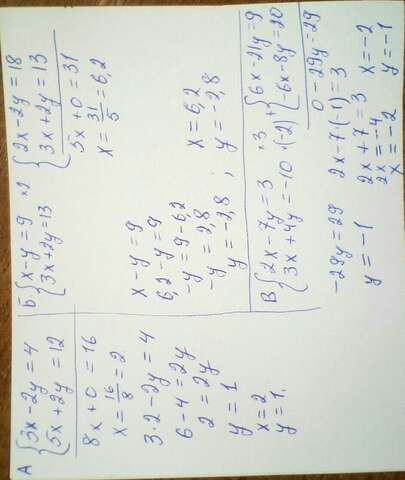 А {3x-2y=4
{5x+2y=12
8x+0=16
x=16/8=2
3·2-2y=4
6-4=2y
2=2y
y=1
x=2
y=1.
Б {x-y=9 ×2
{3x+2y=13
{2x-2y=18
{3x+2y=13
5x+0=31
x=31/5=6,2
x-y=9
6,2-y=9
-y=9-6,2
-y=2,8
y=-2,8;
x=6,2
y=-2,8
В {2x-7y=3 ×3
{3x+4y=-10 ·(-2)
+{6x-21y=9
{-6x-8y=20
0-29y=29
-29y=29
y=-1
2x-7·(-1)=3
2x+7=3
2x=-4
x=-2
x=-2
y=-1